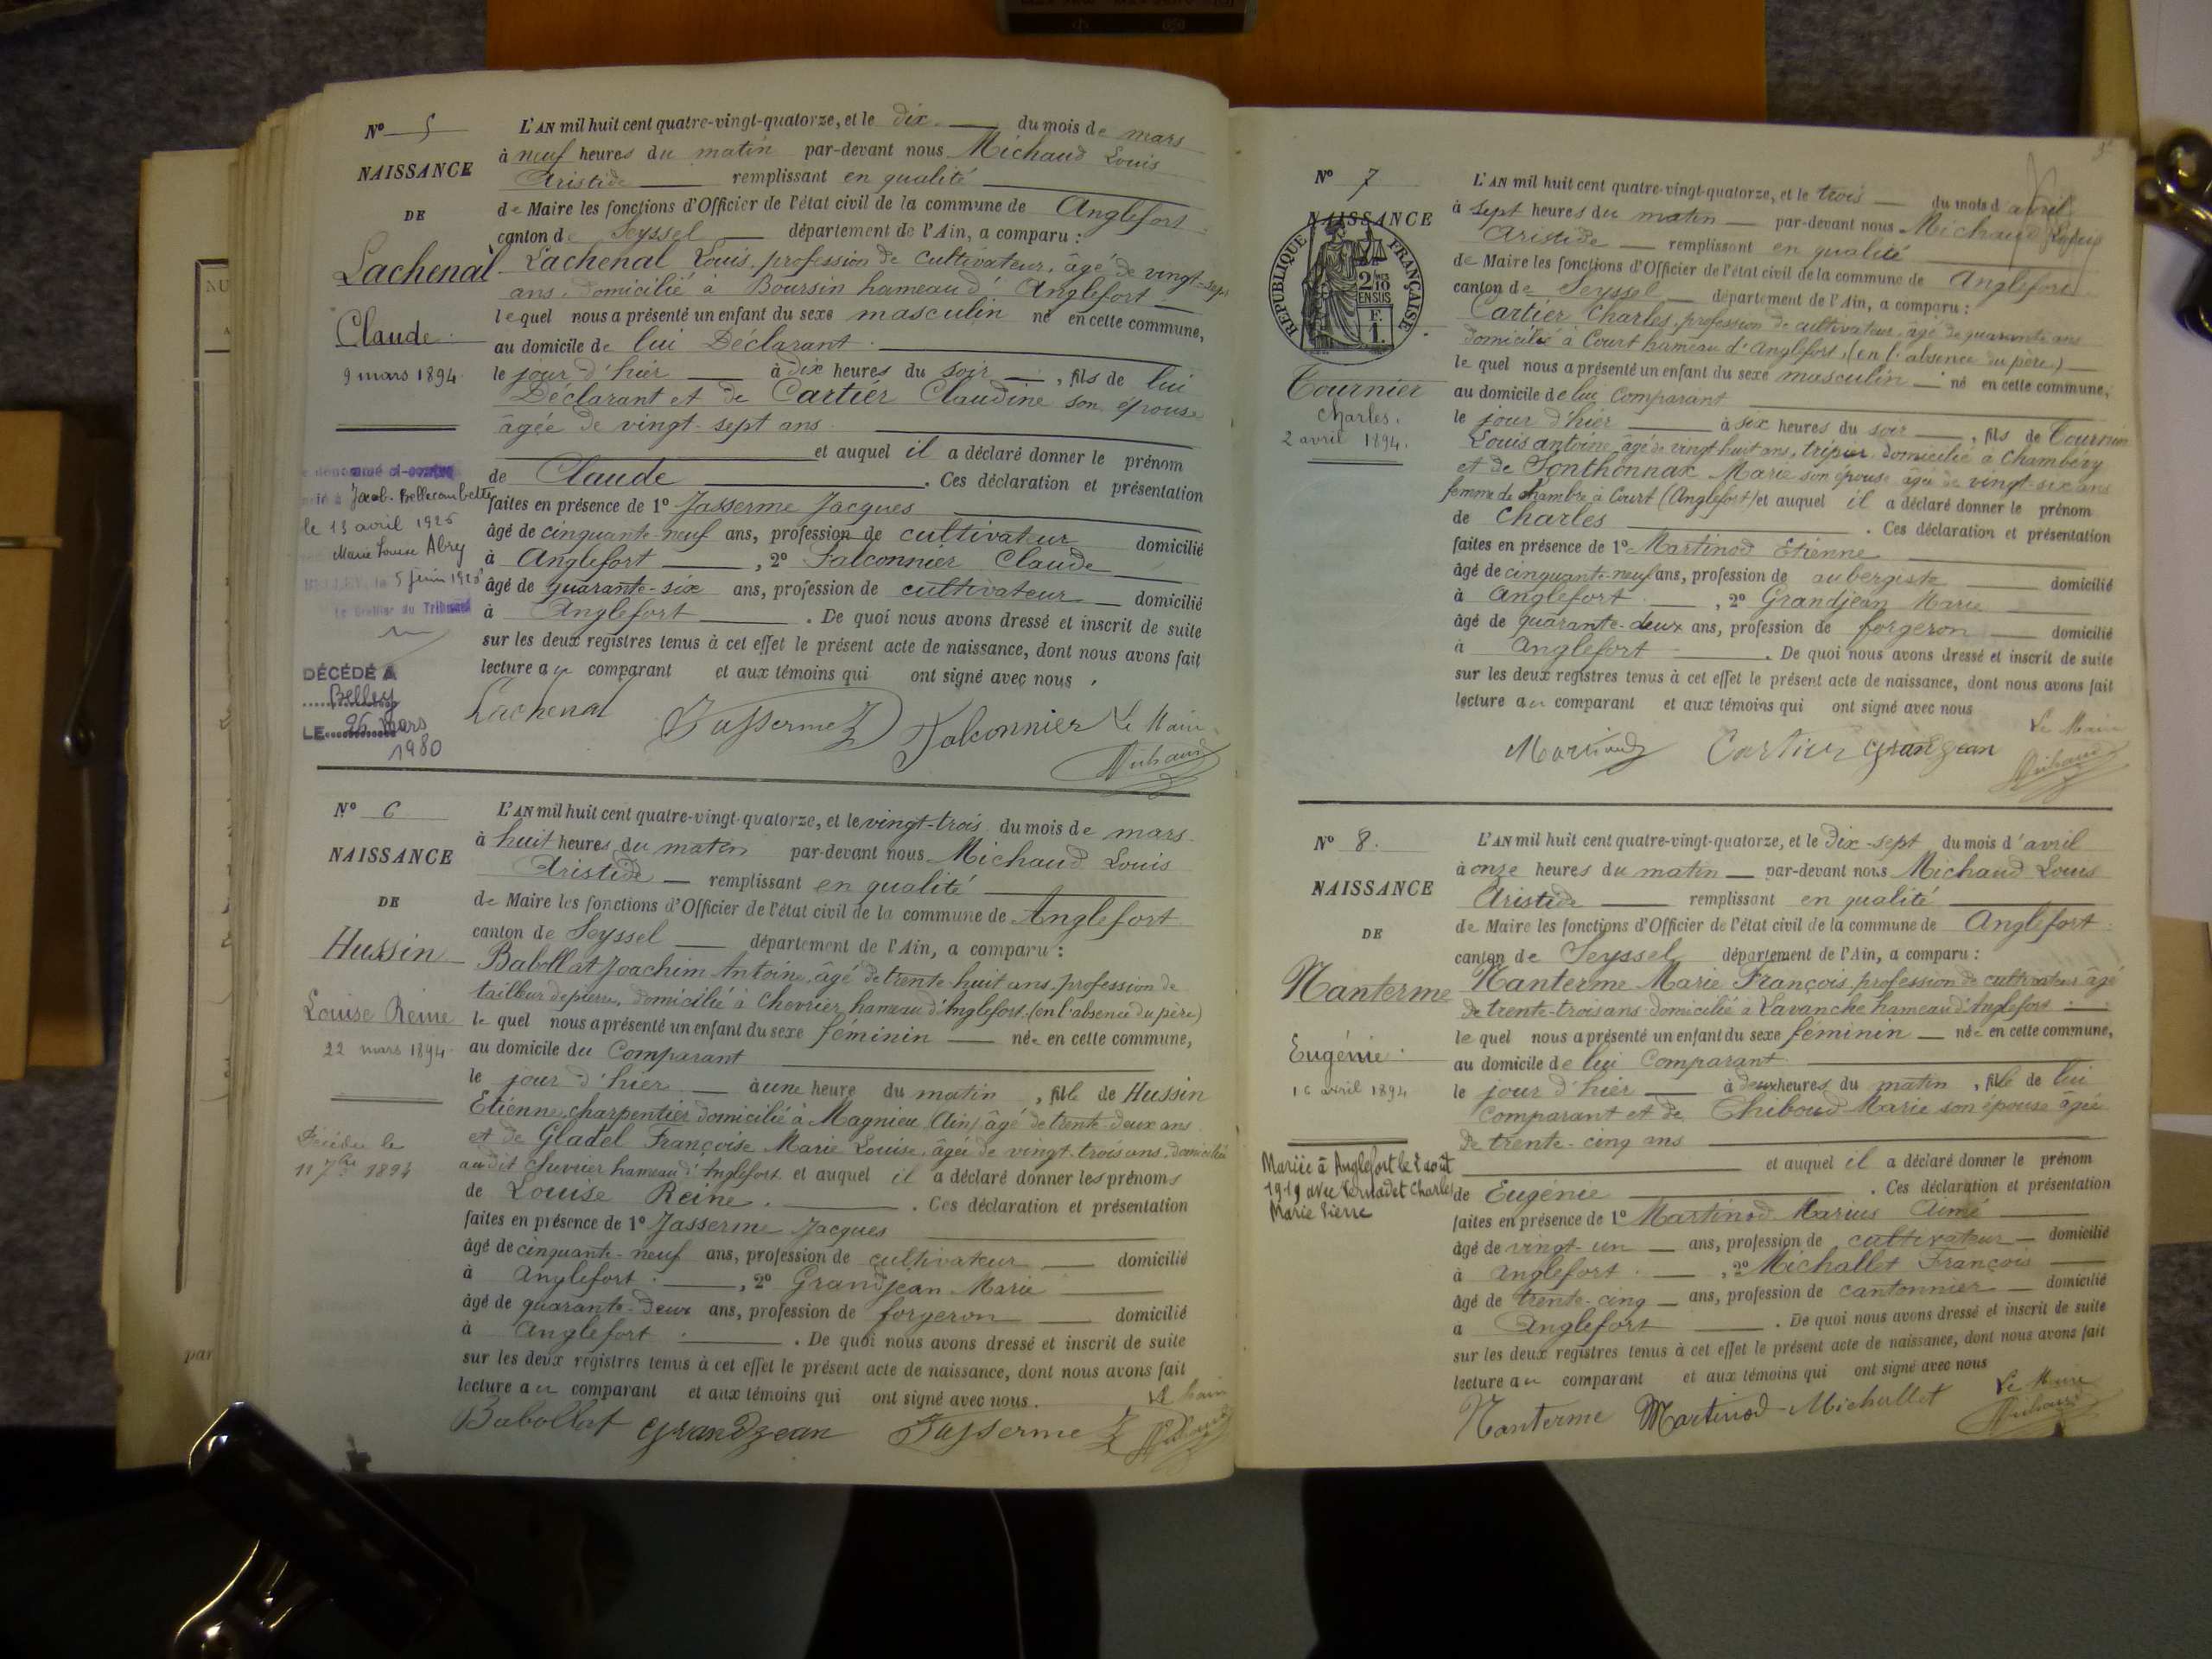 N° 5
NAISSANCE
DE
Lachenal
Claude
9 mars 1894
le dénommé ci-contre
marié à Jacob-Bellecombette
le 13 avril 1925
Marie Louise Abry
BELLEY, le 5 juin 1925
Le Greffier du Tribunal
DÉCÉDÉ A
Belley
LE 26 mars
1980
L'AN mil huit cent quatre-vingt-quatorze, et le dix du mois de mars
à neuf heures du matin par-devant nous Michaud Louis
Aristide remplissant en qualité
de Maire les fonctions d'Officier de l'état civil de la commune de Anglefort
canton de Seyssel département de l'Ain, a comparu :
Lachenal Louis, profession de cultivateur, âgé de vingt-sept
ans, domicilié à Boursin hameau d'Anglefort
lequel nous a présenté un enfant du sexe masculin né en cette commune,
au domicile de lui Déclarant
le jour d'hier à dix heures du soir, fils de lui
Déclarant et de Cartier Claudine son épouse
âgée de vingt-sept ans
et auquel il a déclaré donner le prénom
de Claude. Ces déclaration et présentation
faites en présence de 1° Jasserme Jacques
âgé de cinquante-neuf ans, profession de cultivateur domicilié
à Anglefort, 2° Falconnier Claude
âgé de quarante-six ans, profession de cultivateur domicilié
à Anglefort. De quoi nous avons dressé et inscrit de suite
sur les deux registres tenus à cet effet le présent acte de naissance, dont nous avons fait
lecture au comparant et aux témoins qui ont signé avec nous.
Lachenal Jasserme J Falconnier Le Maire
Michaud
N° 6
NAISSANCE
DE
Hussin
Louise Reine
22 mars 1894
Décédée le
11 7bre 1894
L'AN mil huit cent quatre-vingt-quatorze, et le vingt-trois du mois de mars
à huit heures du matin par-devant nous Michaud Louis
Aristide remplissant en qualité
de Maire les fonctions d'Officier de l'état civil de la commune de Anglefort
canton de Seyssel département de l'Ain, a comparu :
Babollat Joachim Antoine, âgé de trente huit ans, profession de
tailleur de pierres, domicilié à Chevrier, hameau d'Anglefort (en l'absence du père)
le quel nous a présenté un enfant du sexe féminin née en cette commune,
au domicile du Comparant
le jour d'hier à une heure du matin, fille de Hussin
Etienne, charpentier domicilié à Magnieu (Ain) âgé de trente-deux ans
et de Gladel Françoise Marie Louise, âgée de vingt-trois ans, domiciliée
audit Chevrier hameau d'Anglefort et auquel il a déclaré donner les prénoms
de Louise Reine. Ces déclaration et présentation
faites en présence de 1° Jasserme Jacques
âgé de cinquante-neuf ans, profession de cultivateur domicilié
à Anglefort, 2° Grandjean Marie
âgé de quarante-deux ans, profession de forgeron domicilié
à Anglefort. De quoi nous avons dressé et inscrit de suite
sur les deux registres tenus à cet effet le présent acte de naissance, dont nous avons fait
lecture au comparant et aux témoins qui ont signé avec nous.
Babollat Grandjean Jasserme J Le Maire
Michaud
N° 7
NAISSANCE
RÉPUBLIQUE FRANÇAISE
2/10
EN SUS
F.
1.
Tournier
Charles.
2 avril 1894.
L'AN mil huit cent quatre-vingt-quatorze, et le trois du mois d'avril
à sept heures du matin par-devant nous Michaud Louis
Aristide remplissant en qualité
de Maire les fonctions d'Officier de l'état civil de la commune de Anglefort
canton de Seyssel département de l'Ain, a comparu :
Cartier Charles, profession de cultivateur, âgé de quarante ans
domicilié à Court hameau d'Anglefort, (en l'absence du père)
le quel nous a présenté un enfant du sexe masculin né en cette commune,
au domicile de lui Comparant
le jour d'hier à six heures du soir, fils de Tournier
Louis antoine, âgé de vingt huit ans, tripier, domicilié à Chambéry
et de Fonthonnax Marie son épouse âgée de vingt-six ans
femme de chambre à Court (Anglefort) et auquel il a déclaré donner le prénom
de Charles. Ces déclaration et présentation
faites en présence de 1° Martinod Etienne
âgé de cinquante-neuf ans, profession de aubergiste domicilié
à Anglefort, 2° Grandjean Marie
âgé de quarante-deux ans, profession de forgeron domicilié
à Anglefort. De quoi nous avons dressé et inscrit de suite
sur les deux registres tenus à cet effet le présent acte de naissance, dont nous avons fait
lecture au comparant et aux témoins qui ont signé avec nous
Martinod Cartier Grandjean Le Maire
Michaud
N° 8.
NAISSANCE
DE
Nanterme
Eugénie
16 avril 1894
Mariée à Anglefort le 2 août
1919 avec Charles
Marie Pierre
L'AN mil huit cent quatre-vingt-quatorze, et le Dix-sept du mois d'avril
à onze heures du matin par-devant nous Michaud Louis
Aristide remplissant en qualité
de Maire les fonctions d'Officier de l'état civil de la commune de Anglefort
canton de Seyssel département de l'Ain, a comparu :
Nanterme Marie François, profession de cultivateur âgé
de trente-trois ans domicilié à Lavanche hameau d'Anglefort
le quel nous a présenté un enfant du sexe féminin née en cette commune,
au domicile de lui Comparant
le jour d'hier à deux heures du matin, fille de lui
comparant et de Chiboud Marie son épouse âgée
de trente-cinq ans
et auquel il a déclaré donner le prénom
de Eugénie. Ces déclaration et présentation
faites en présence de 1° Martinod Marius Aimé
âgé de vingt-un ans, profession de cultivateur domicilié
à Anglefort, 2° Michallet François
âgé de trente-cinq ans, profession de cantonnier domicilié
à Anglefort. De quoi nous avons dressé et inscrit de suite
sur les deux registres tenus à cet effet le présent acte de naissance, dont nous avons fait
lecture au comparant et aux témoins qui ont signé avec nous
Nanterme Martinod Michallet Le Maire
Michaud